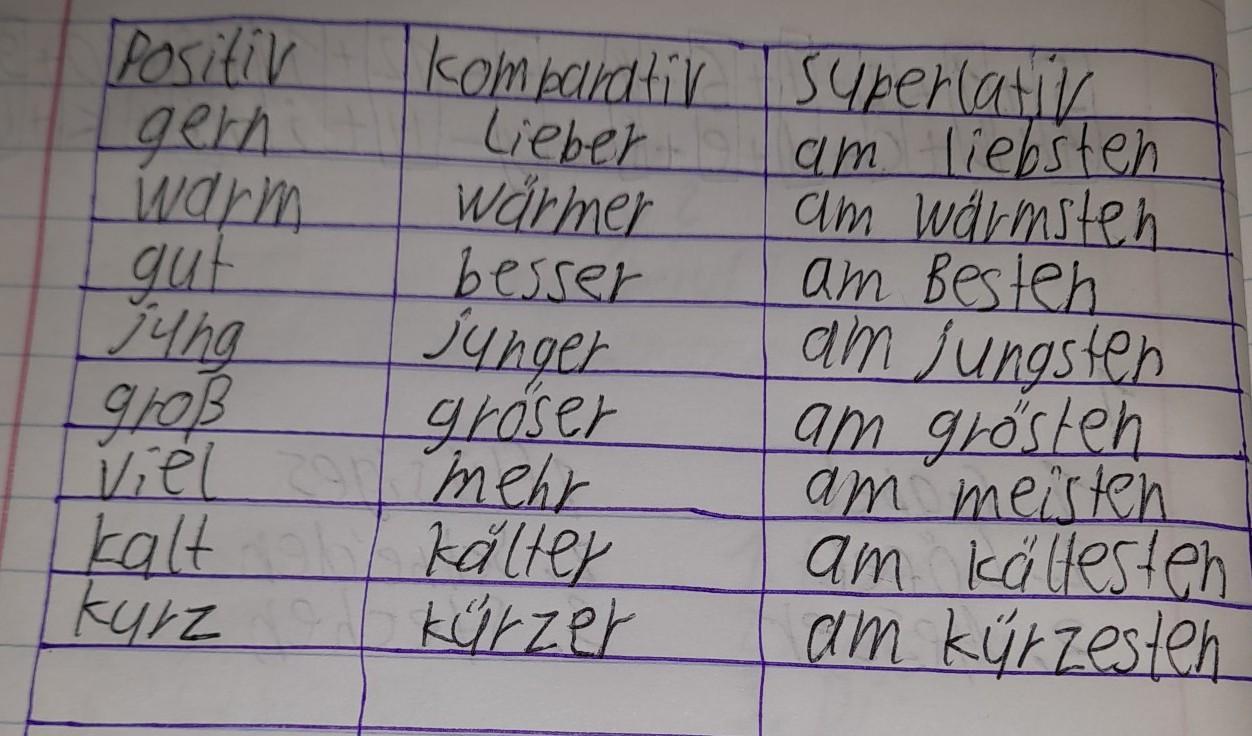 Positiv Komparativ Superlativ
gern Lieber am liebsten
warm wärmer am wärmsten
gut besser am Besten
jung junger am jungsten
groß gröser am grösten
viel mehr am meisten
kalt kälter am kältesten
kurz kürzer am kürzesten